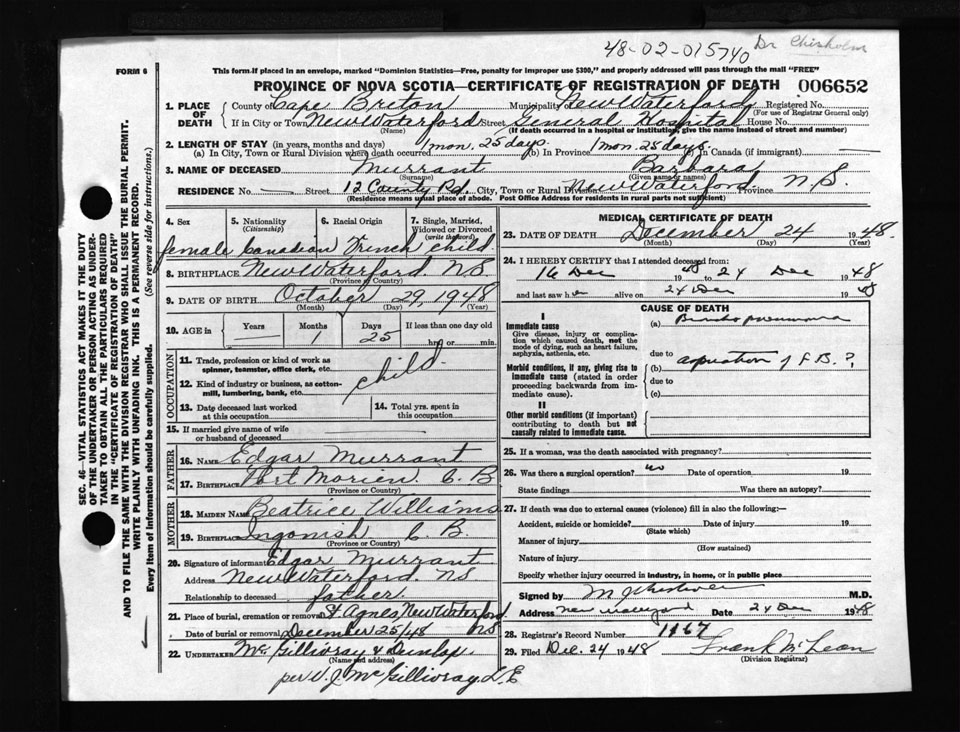 48-02-015740 Dr Chisholm
FORM 6
This form if placed in an envelope, marked "Dominion Statistics—Free, penalty for improper use $300," and properly addressed will pass through the mail "FREE"
PROVINCE OF NOVA SCOTIA—CERTIFICATE OF REGISTRATION OF DEATH 006652
SEC. 46—VITAL STATISTICS ACT MAKES IT THE DUTY
OF THE UNDERTAKER OR PERSON ACTING AS UNDER-
TAKER TO OBTAIN ALL THE PARTICULARS REQUIRED
IN THE "CERTIFICATE OF REGISTRATION OF DEATH"
AND TO FILE THE SAME WITH THE DIVISION REGISTRAR WHO SHALL ISSUE THE BURIAL PERMIT.
WRITE PLAINLY WITH UNFADING INK. THIS IS A PERMANENT RECORD.
Every item of information should be carefully supplied. (See reverse side for instructions.)
1. PLACE OF DEATH
County of Cape Breton Municipality New Waterford Registered No.
(For use of Registrar General only)
If in City or Town New Waterford Street General Hospital House No.
(Name) (If death occurred in a hospital or institution, give the name instead of street and number)
2. LENGTH OF STAY (in years, months and days)
(a) In City, Town or Rural Division where death occurred 1 mon. 25 days. (b) In Province 1 mon. 25 days (c) In Canada (if immigrant) —
3. NAME OF DECEASED Murrant Barbara
(Surname) (Given name or names)
RESIDENCE No. — Street 12 County Rd. City, Town or Rural Div. New Waterford Province N.S.
(Residence means usual place of abode. Post Office Address for residents in rural parts not sufficient)
4. Sex 5. Nationality 6. Racial Origin 7. Single, Married,
(Citizenship) Widowed or Divorced
(write the word)
female Canadian French child
8. BIRTHPLACE New Waterford N.S.
(Province or Country)
9. DATE OF BIRTH October 29, 1948
(Month) (Day) (Year)
10. AGE in Years Months Days If less than one day old
— 1 25 hrs. or min.
OCCUPATION
11. Trade, profession or kind of work as
spinner, teamster, office clerk, etc.
12. Kind of industry or business, as cotton-
mill, lumbering, bank, etc.
child
13. Date deceased last worked
at this occupation
14. Total yrs. spent in
this occupation
15. If married give name of wife
or husband of deceased
FATHER
16. NAME Edgar Murrant
17. BIRTHPLACE Port Morien. C.B
(Province or Country)
MOTHER
18. MAIDEN NAME Beatrice Williams
19. BIRTHPLACE Ingonish C.B.
(Province or Country)
20. Signature of informant Edgar Murrant
Address New Waterford. N.S
Relationship to deceased father
21. Place of burial, cremation or removal St Agnes, New Waterford
Date of burial or removal December 25/48 N.S
22. UNDERTAKER McGillivray & Dunlap
(Name and address)
per V. J. McGillivray L.E
MEDICAL CERTIFICATE OF DEATH
23. DATE OF DEATH December 24 1948.
(Month) (Day) (Year)
24. I HEREBY CERTIFY that I attended deceased from:
16 Dec 1948 to 24 Dec 1948
and last saw her alive on 24 Dec 1948
CAUSE OF DEATH
I
Immediate cause
Give disease, injury or complica-
tion which caused death, not the
mode of dying, such as heart failure,
asphyxia, asthenia, etc.
(a) Broncho pneumonia
due to
Morbid conditions, if any, giving rise to
immediate cause (stated in order
proceeding backwards from im-
mediate cause).
(b) aspiration of F.B. ?
due to
(c)
II
Other morbid conditions (if important)
contributing to death but not
causally related to immediate cause.
25. If a woman, was the death associated with pregnancy?
26. Was there a surgical operation? no Date of operation 19
State findings Was there an autopsy?
27. If death was due to external causes (violence) fill in also the following:—
Accident, suicide or homicide? Date of injury 19
(State which)
Manner of injury
(How sustained)
Nature of injury
Specify whether injury occurred in industry, in home, or in public place
Signed by M J Chisholm M.D.
Address New Waterford Date 24 Dec 1948
28. Registrar's Record Number 1167
29. Filed Dec. 24 1948 Frank McLean
(Division Registrar)